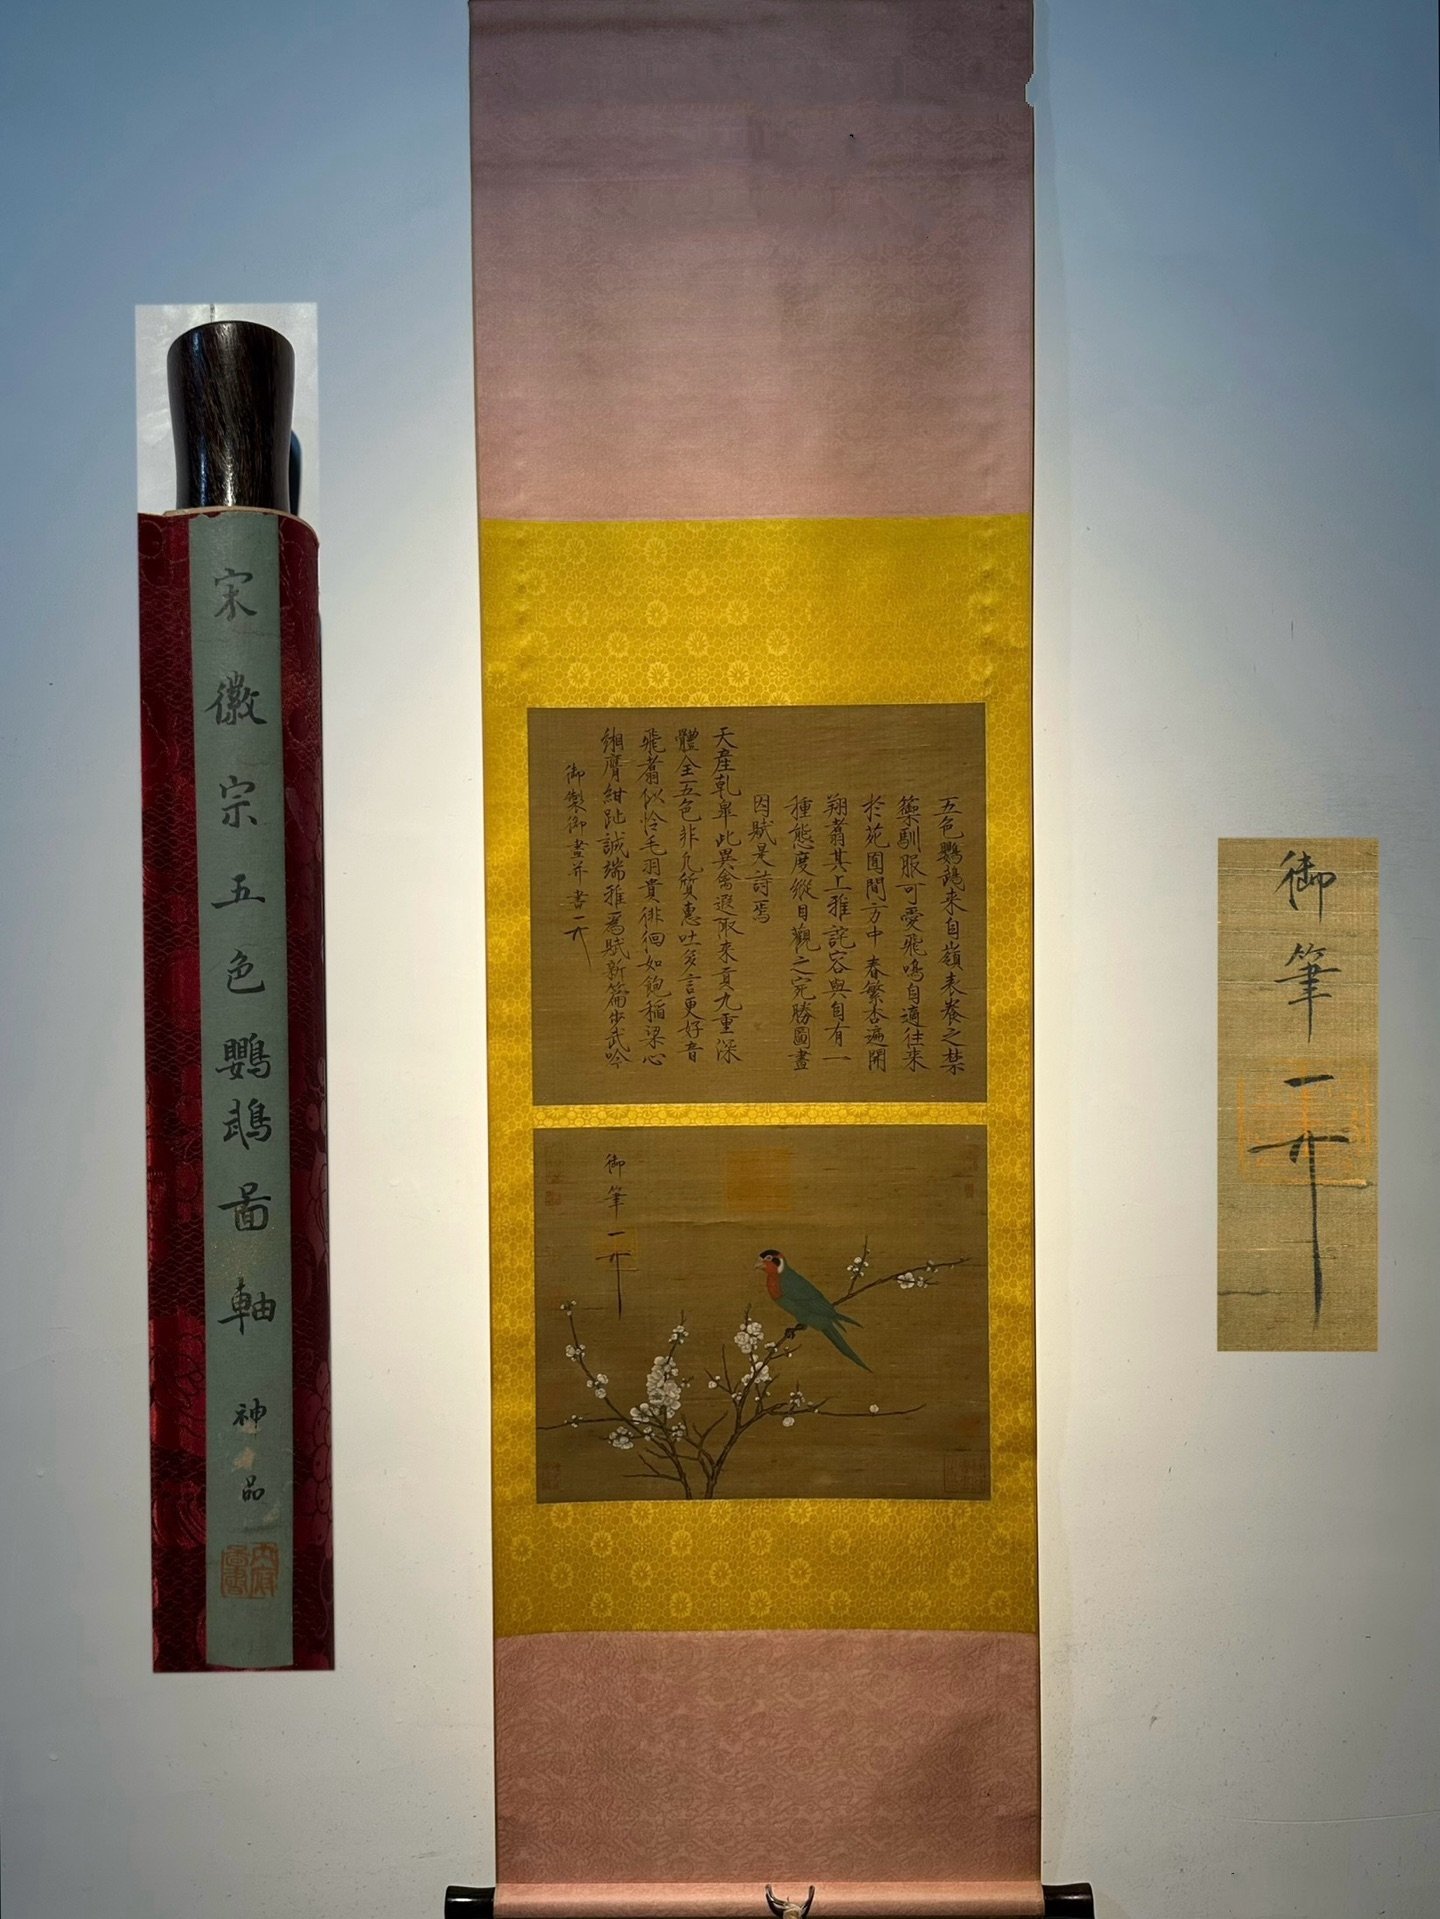 宋徽宗五色鸚鵡图軸
神品
五色鸚鵡来自嶺表養之禁
籞馴服可愛飛鳴自適往来
於苑囿間方中春繁杏遍開
翔翥其上雅詫容與自有一
種態度縱目觀之宛勝圖畫
因賦是詩焉
天産乾皐此異禽遐陬来貢九重深
體全五色非凡質惠吐多言更好音
飛翥似怜毛羽貴徘徊如飽稲粱心
緗膺紺趾誠端雅爲賦新篇步武吟
御製御畫并書
御筆
御筆